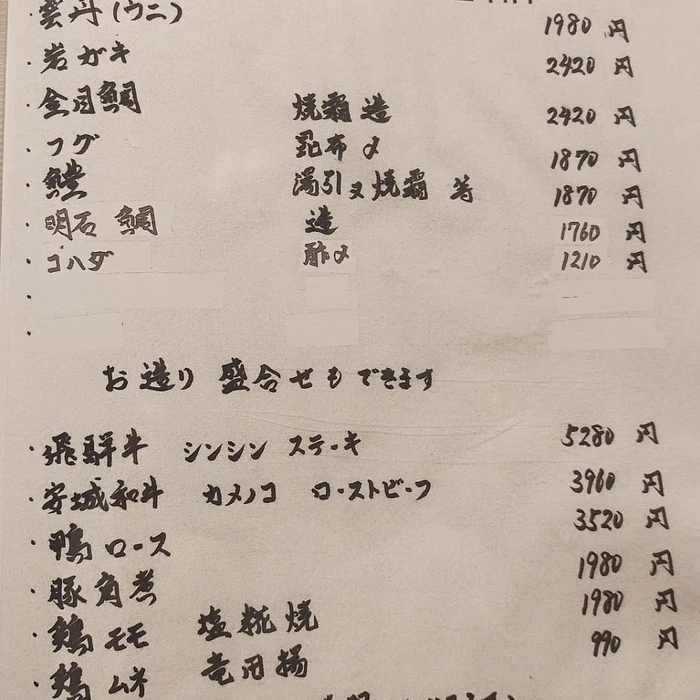 ・雲丹(ウニ) 1980円
・岩ガキ 2420円
・金目鯛 焼霜造 2420円
・フグ 昆布〆 1870円
・鱧 湯引又焼霜等 1870円
・明石鯛 造 1760円
・コハダ 酢〆 1210円
・
・
お造り盛合せもできます
・飛騨牛 シンシンステーキ 5280円
・安城和牛 カメノコ ローストビーフ 3960円
・鴨ロース 3520円
・豚角煮 1980円
・鶏モモ 塩糀焼 1980円
・鶏ムネ 竜田揚 990円